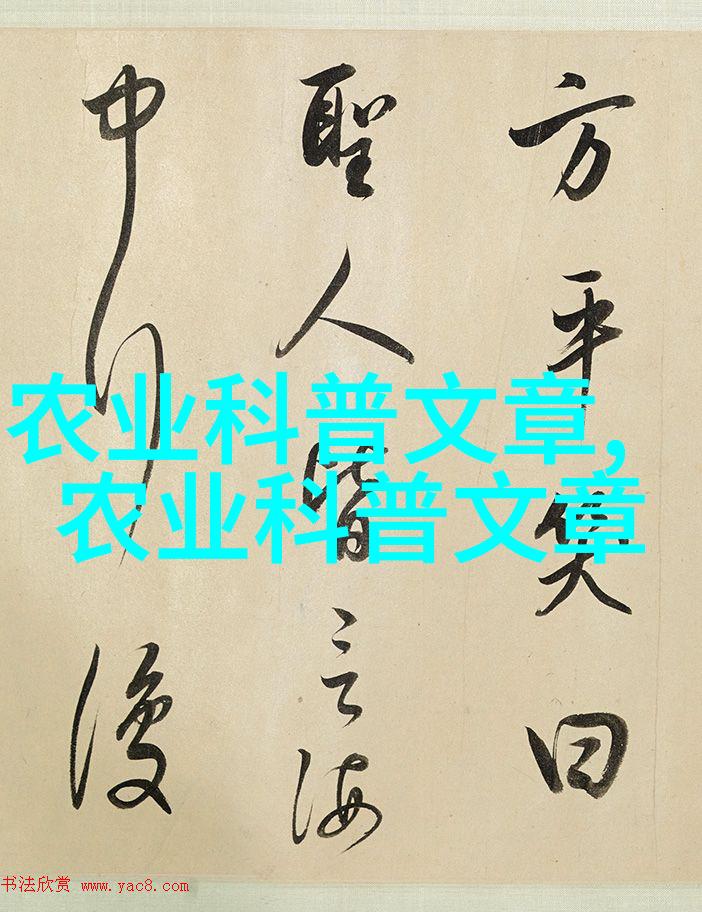 方平笑曰
聖人皆言海
中行復
农业科普文章,
农业科普文章
书法欣赏 www.yac8.com